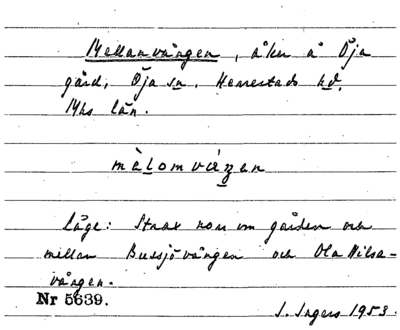 Mellanvången, åker å Öja
gård, Öja sn. Herrestads hd.
Mhs län.
mèlomváŋen
Läge: Strax norr om gården och
mellan Bussjövången och Ola Nilsa-
vången.
Nr 5639.
I. Ingers 1953.